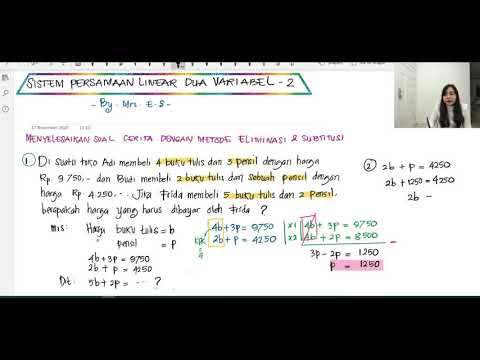 SISTEM PERSAMAAN LINEAR DUA VARIABEL - 2
- By. Mrs. E.S -
17 November 2020
MENYELESAIKAN SOAL CERITA DENGAN METODE ELIMINASI & SUBSTITUSI
1. Di suatu toko Adi membeli 4 buku tulis dan 3 pensil dengan harga
Rp. 9.750,- dan Budi membeli 2 buku tulis dan sebuah pensil dengan
harga Rp. 4.250,-. Jika Frida membeli 5 buku tulis dan 2 pensil,
berapakah harga yang harus dibayar oleh Frida ?
Mis: Harga buku tulis = b
pensil = p
4b + 3p = 9750
2b + p = 4250
Dit: 5b + 2p = ... ?
KPK = 4
4b + 3p = 9750 | x1 | 4b + 3p = 9750
2b + p = 4250 | x2 | 4b + 2p = 8500
3p - 2p = 1250
p = 1250
2 2b + p = 4250
2b + 1250 = 4250
2b =